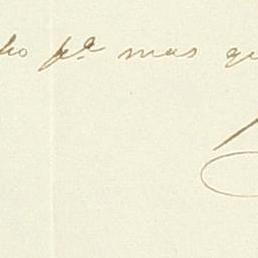 ho pª mas qu